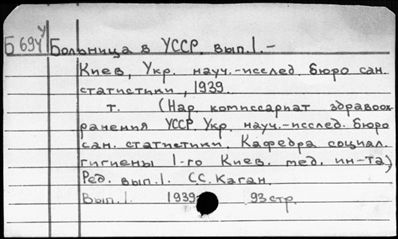 Б 694У Больница в УССР. вып. 1.-
Киев, Укр. науч.-исслед. бюро сан.
статистики, 1939.
т. (Нар. комиссариат здравоох-
ранения УССР. Укр. науч.-исслед. бюро
сан. статистики. Кафедра социал.
гигиены 1-го Киев. мед. ин-та)
Ред. вып. 1. С.С. Каган.
Вып. 1. 1939 93 стр.